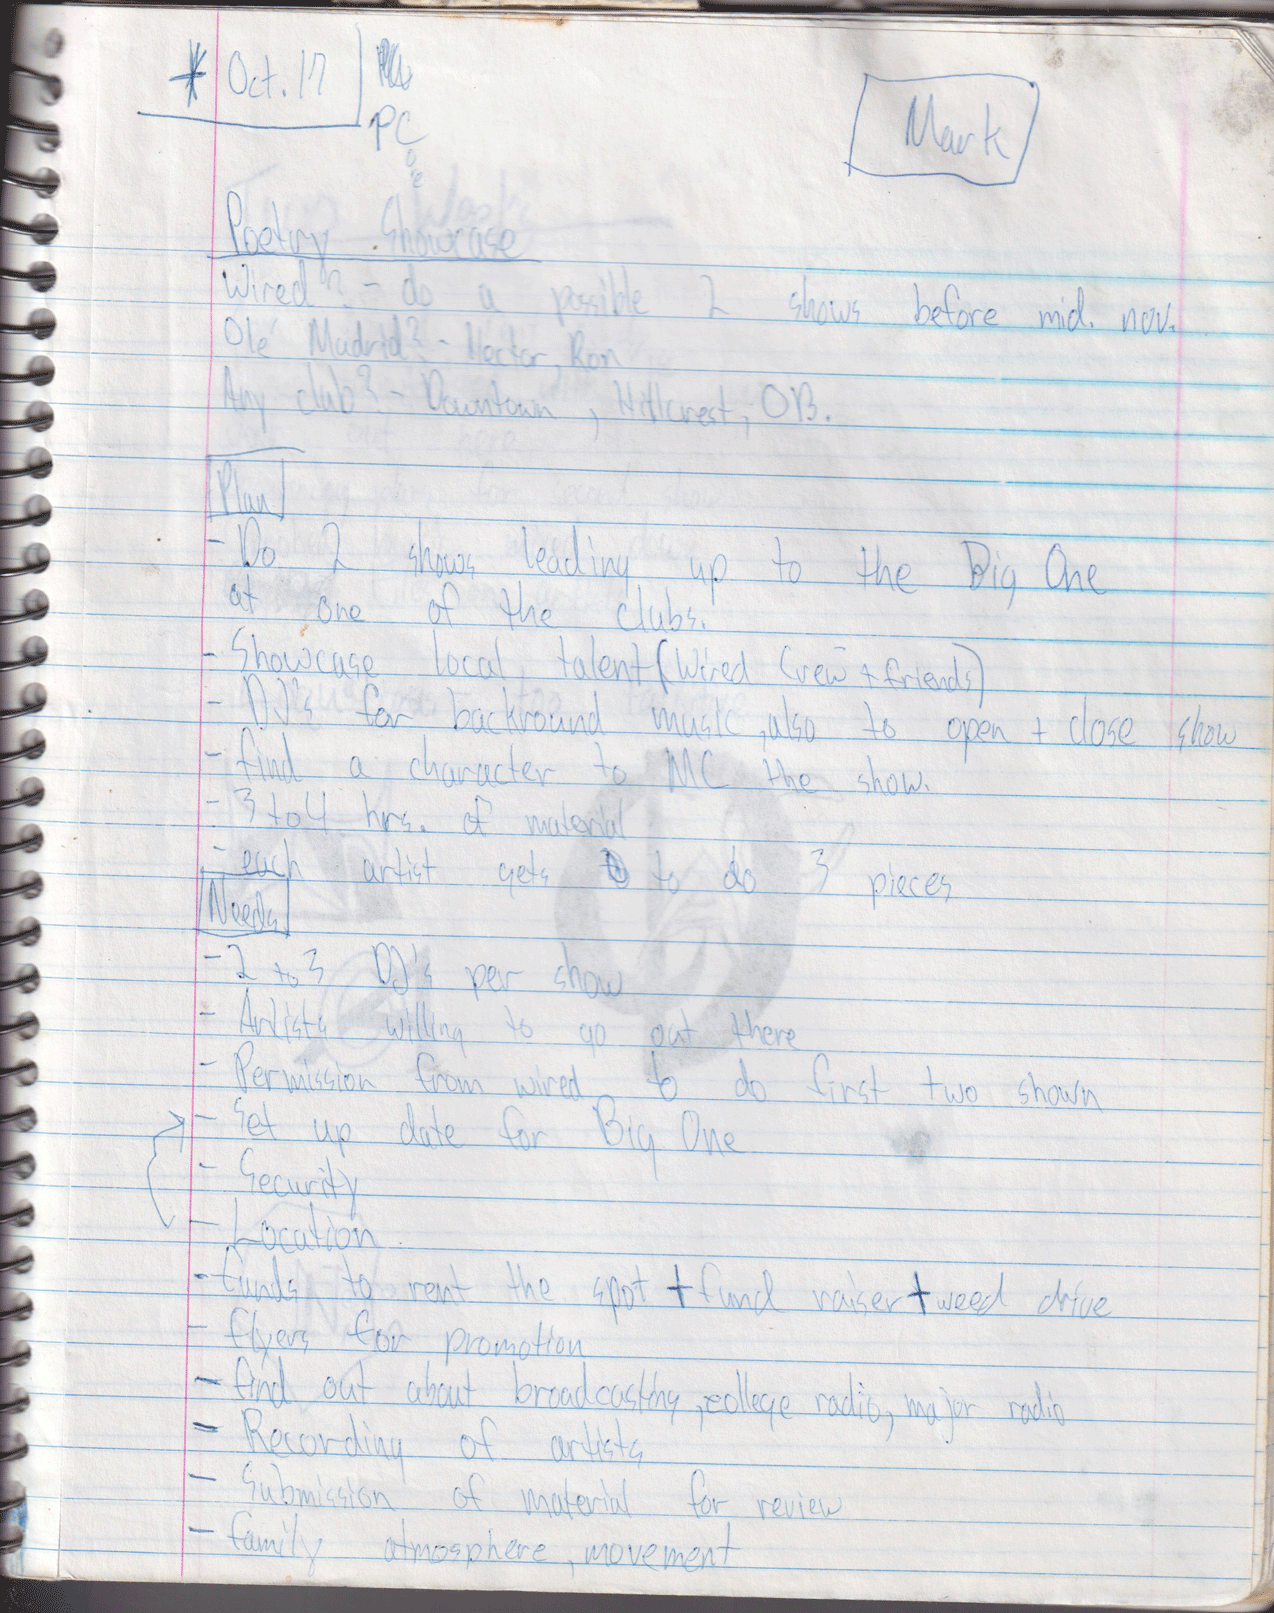 * Oct. 17
PC
Mark
Poetry Showcase
Wired? - do a possible 2 shows before mid. nov.
Olé Madrid? - Hector, Ron
Any club? - Downtown, Hillcrest, OB.
Plan
- Do 2 shows leading up to the Big One
at one of the clubs.
- Showcase local talent (Wired Crew + friends)
- DJ's for backround music, also to open + close show
- find a character to MC the show.
- 3 to 4 hrs. of material
- each artist gets to do 3 pieces
Needs
- 2 to 3 DJ's per show
- Artists willing to go out there
- Permission from wired to do first two shown
- Set up date for Big One
- Security
- Location
- funds to rent the spot + fund raiser + weed drive
- flyers for promotion
- find out about broadcasting, college radio, major radio
- Recording of artists
- Submission of material for review
- family atmosphere, movement